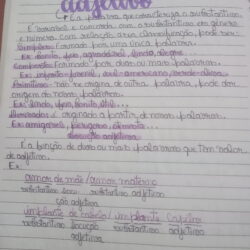 adjetivo
É a palavra que caracteriza o substantivo
E concorda com o substantivo em gênero
e número. Com relação a sua classificação, pode ser:
Simples: Formado por uma única palavra.
Ex: Bonito, feio, agradável, alegre
Composto: Formado por duas ou mais palavras.
Ex: sul-americano, verde-claro
Primitivo: não se origina de outra palavra, pode dar
origem à novas palavras.
Ex: lindo, feio, bonito, útil...
Derivados: é originado a partir de outra palavra.
Ex: amigável,
Locução adjetiva
É a junção de duas ou mais palavras que tem valor
de adjetivo.
Ex:
amor de mãe / amor materno
substantivo locução substantivo adjetivo
ção adjetiva
implante de cabelo / implante capilar
substantivo locução substantivo adjetivo
adjetiva